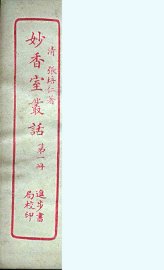 清 張培仁著
妙香室叢話 第一冊
進步書
局校印